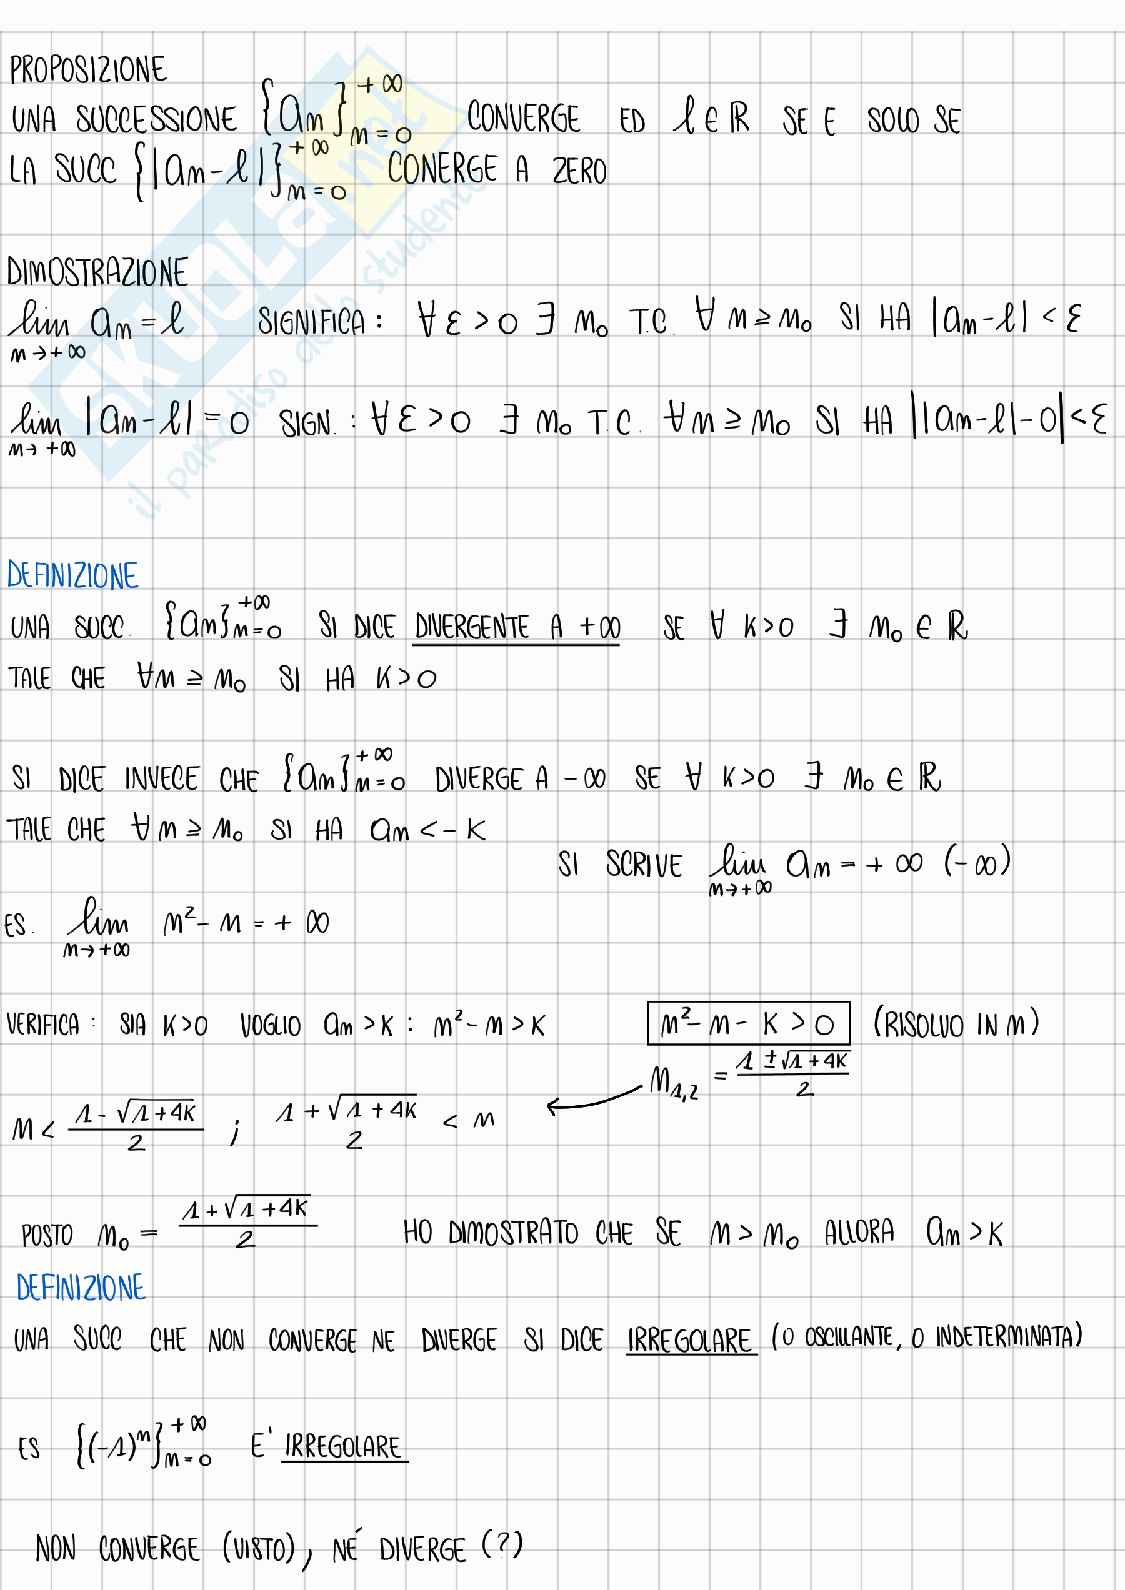 PROPOSIZIONE
UNA SUCCESSIONE {am}_{m=0}^{+∞} CONVERGE ED l ∈ ℝ SE E SOLO SE
LA SUCC {|am-l|}_{m=0}^{+∞} CONERGE A ZERO
DIMOSTRAZIONE
lim_{m→+∞} am = l SIGNIFICA: ∀ ε > 0 ∃ m₀ T.C. ∀ m ≥ m₀ SI HA |am-l| < ε
lim_{m→+∞} |am-l| = 0 SIGN.: ∀ ε > 0 ∃ m₀ T.C. ∀ m ≥ m₀ SI HA ||am-l|-0| < ε
DEFINIZIONE
UNA SUCC. {am}_{m=0}^{+∞} SI DICE DIVERGENTE A +∞ SE ∀ K>0 ∃ m₀ ∈ ℝ
TALE CHE ∀m ≥ m₀ SI HA K>0
SI DICE INVECE CHE {am}_{m=0}^{+∞} DIVERGE A -∞ SE ∀ K>0 ∃ m₀ ∈ ℝ
TALE CHE ∀m ≥ m₀ SI HA am < -K
SI SCRIVE lim_{m→+∞} am = +∞ (-∞)
ES. lim_{m→+∞} m² - m = +∞
VERIFICA: SIA K>0 VOGLIO am > K : m² - m > K m² - m - K > 0 (RISOLVO IN m)
m_{1,2} = (1 ± √(1+4K))/2
m < (1 - √(1+4K))/2 ; (1 + √(1+4K))/2 < m
POSTO m₀ = (1 + √(1+4K))/2 HO DIMOSTRATO CHE SE m > m₀ ALLORA am > K
DEFINIZIONE
UNA SUCC CHE NON CONVERGE NE DIVERGE SI DICE IRREGOLARE (O OSCILLANTE, O INDETERMINATA)
ES {(-1)^m}_{m=0}^{+∞} E' IRREGOLARE
NON CONVERGE (VISTO), NÉ DIVERGE (?)
skuola.net
il paradiso dello studente